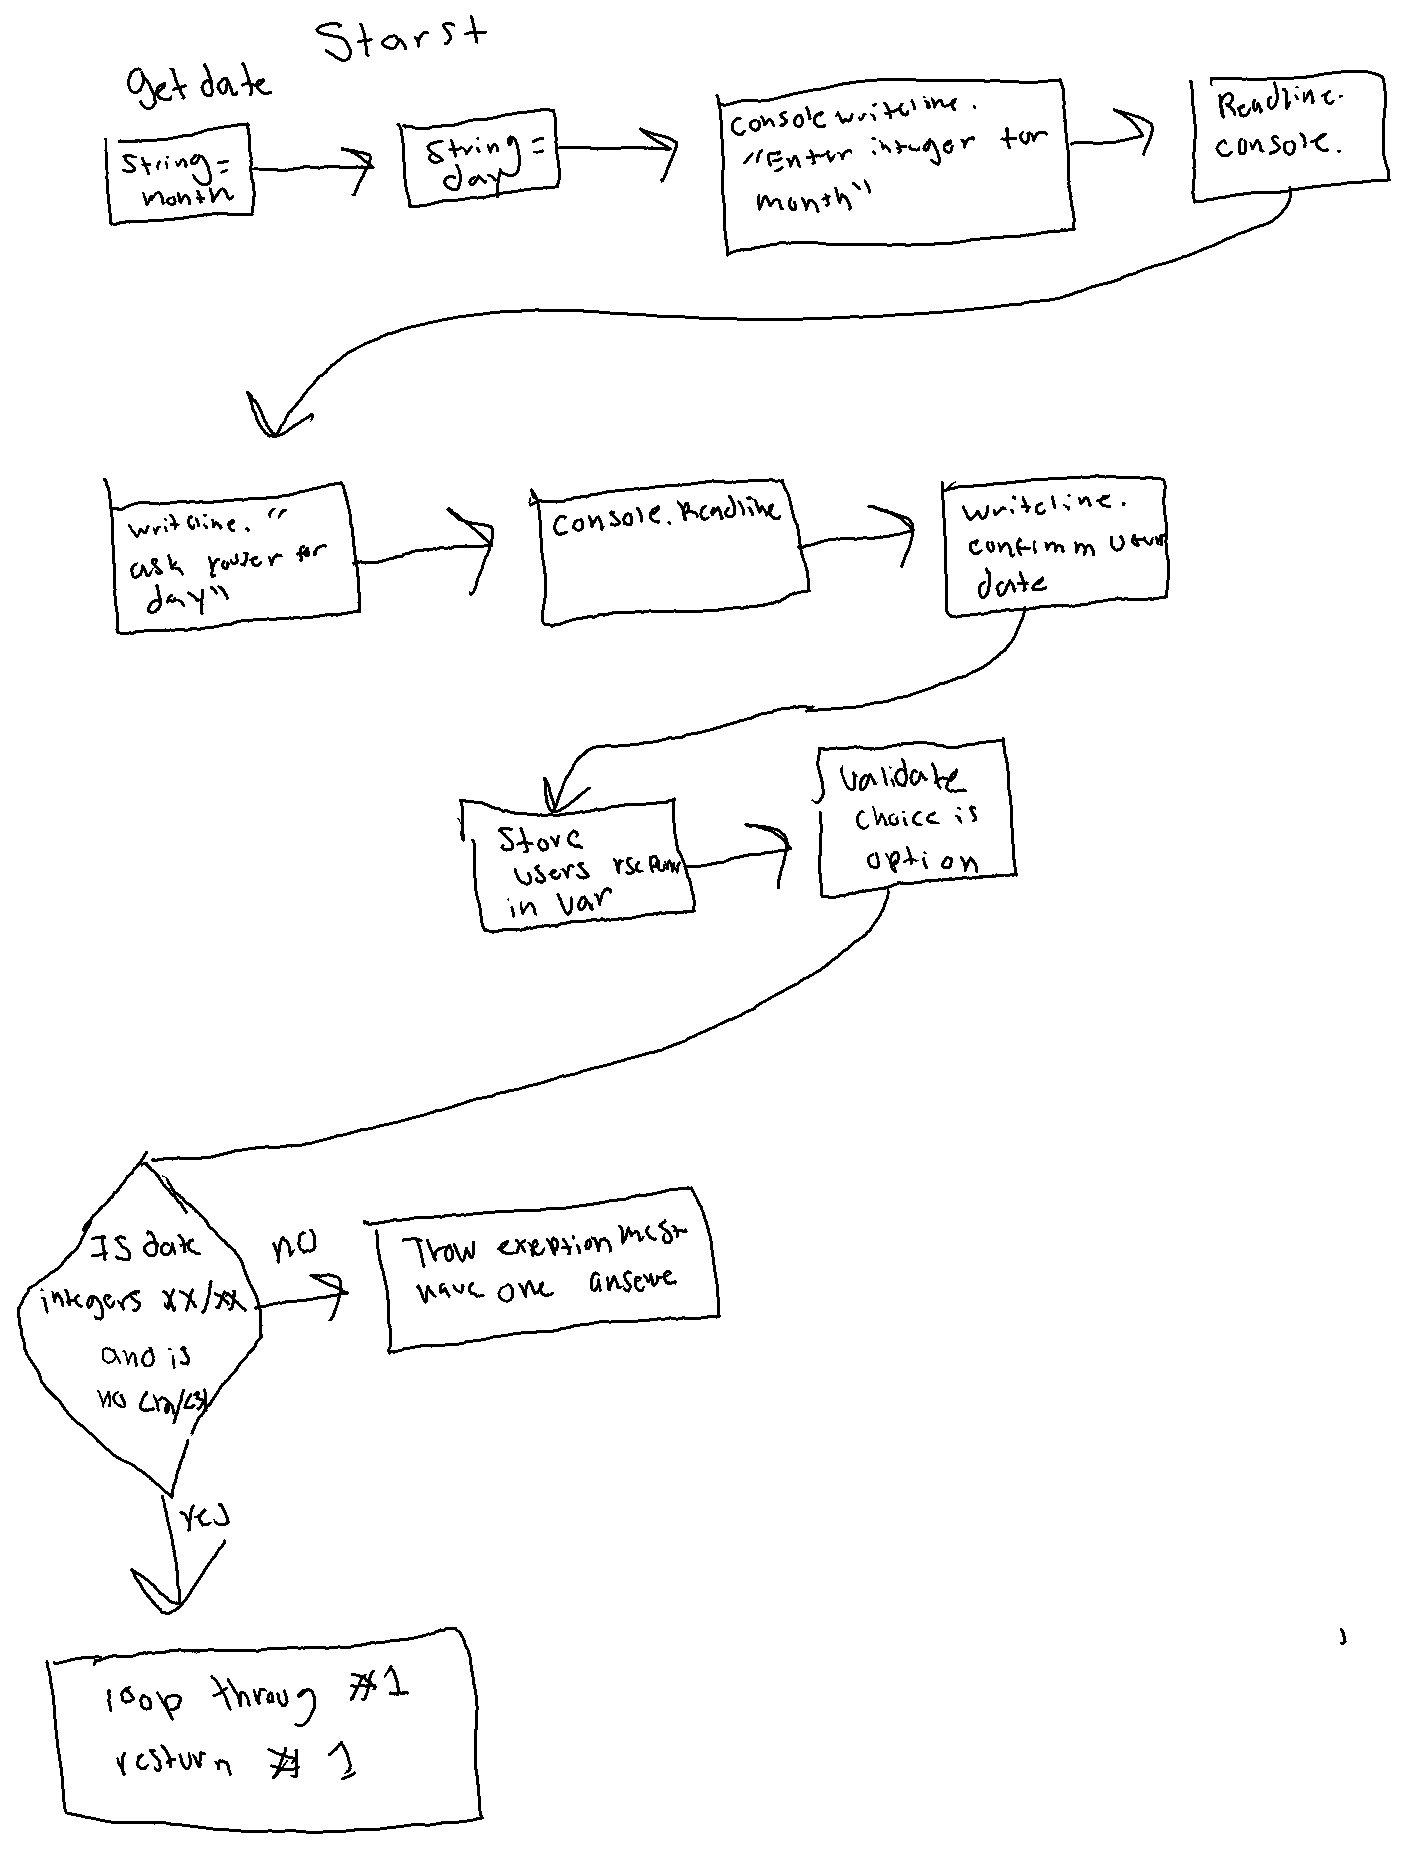 Starst
get date
String =
month
String =
day
Console writeline.
"Enter integer for
month"
Readline.
console.
writeline. "
ask for
day"
Console. Readline
writeline.
confirmm
date
Store
users
in var
validate
choice is
option
Is date
integers xx/xx
and is
no <12/<31
no
Trow exeption
have one
yes
loop throug #1
resturn # 1